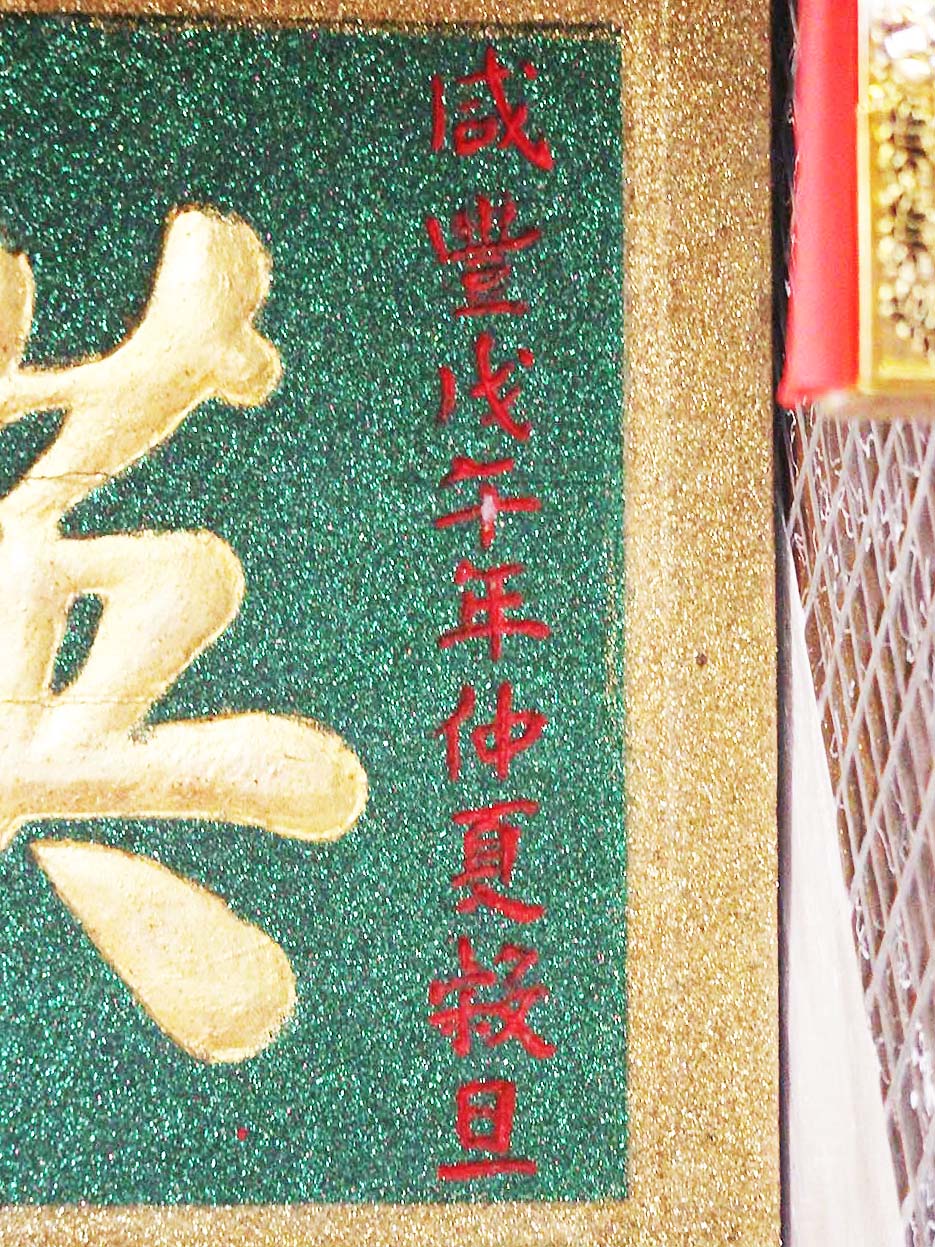 咸豐戊午年仲夏穀旦